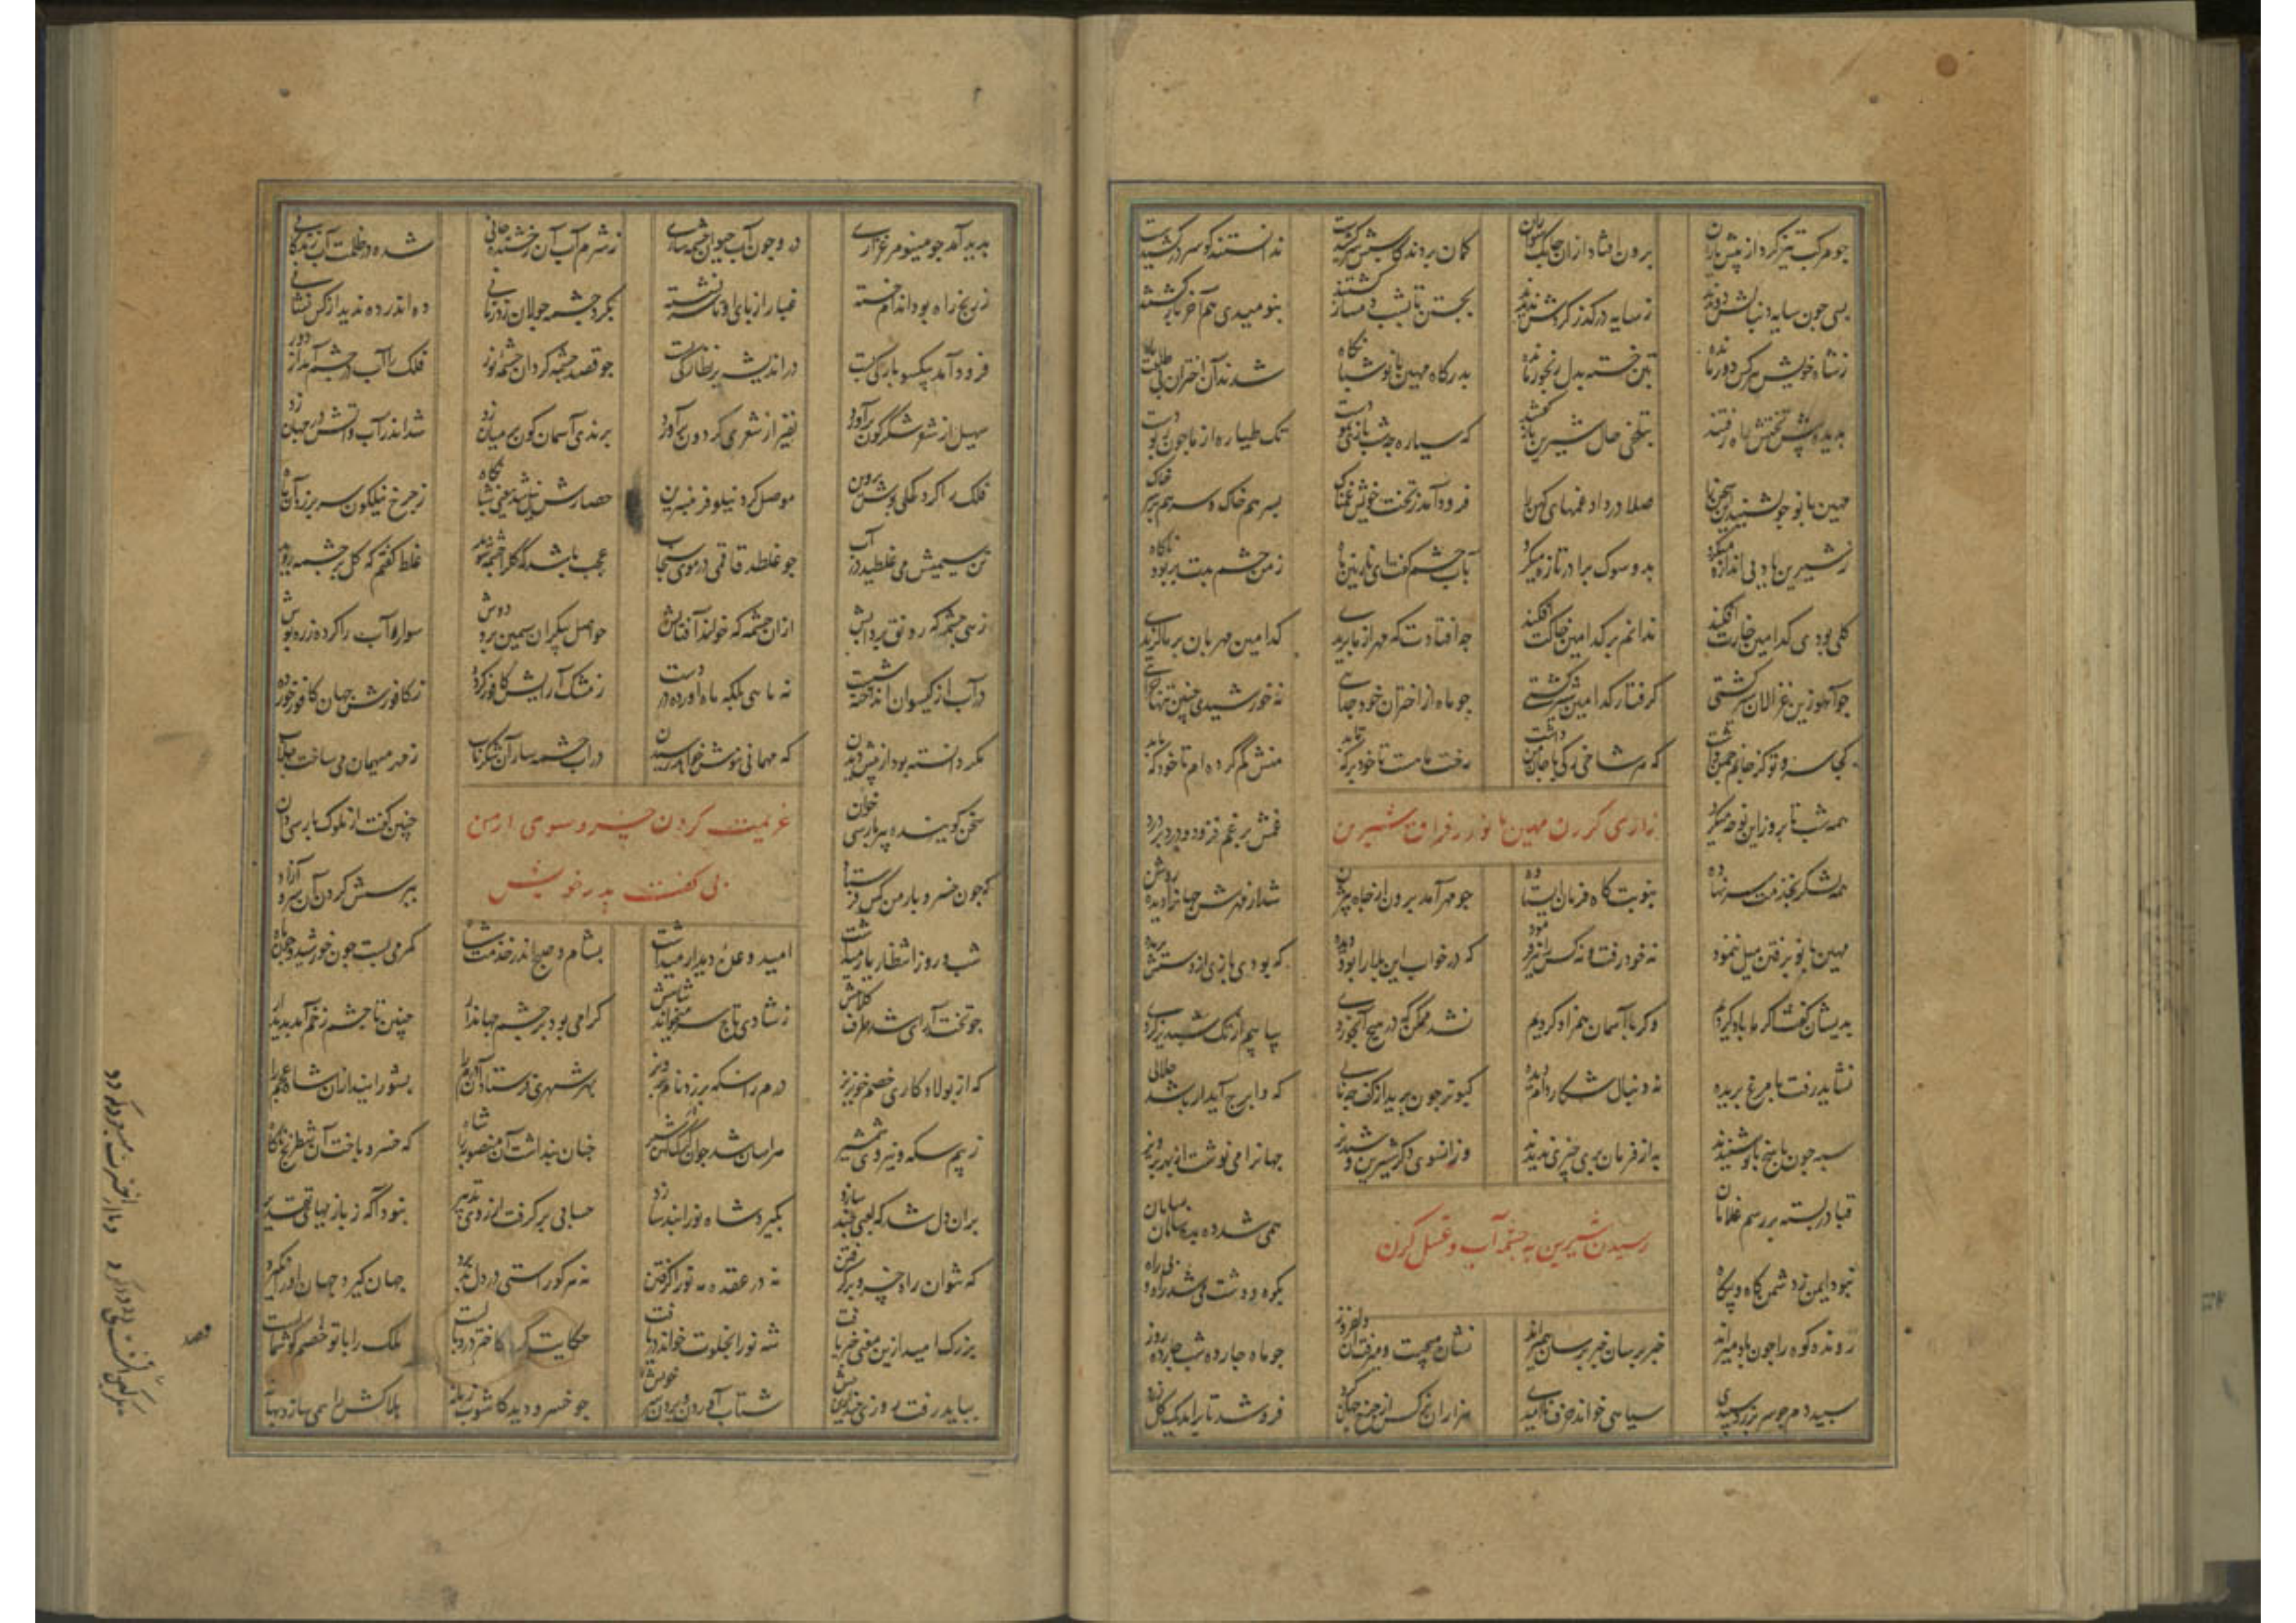 چو مرکب تیز کرد از پیش یاران برون افتاد از آن چابک سواران گمان بردند کاسبش سرکشیدست ندانستند کو سر درکشیدست
بسی چون سایه دنبالش دویدند ز سایه در گذر گردش ندیدند بجستن تا بشب دمساز گشتند بنومیدی هم آخر بازگشتند
ز شاه خویش هر کس دور مانده بتن خسته بدل رنجور مانده بدرگاه مهین بانو شبانگاه شدند آن اختران بی طلعت ماه
بدیده پیش تختش راه رفتند بتلخی حال شیرین بازگفتند که سیاره چه شب بازی نمودست تک طیاره از ما چون ربودست
مهین بانو چو بشنید این سخن را صلا در داد غمهای کهن را فرود آمد ز تخت خویش غمناک بسر هم خاک و سر هم بر سر خاک
ز شیرین یاد بی اندازه میکرد بدو سوک برادر تازه میکرد بآب چشم گفت ای نازنین ماه ز من چشم بدت بربود ناگاه
گلی بودی کدامین خارت افکند ندانم بر کدامین خاکت افکند چه افتادت که مهر از ما بریدی کدامین مهربان بر ما گزیدی
چو آهو زین غزالان سیر گشتی گرفتار کدامین شیر گشتی چو ماه از اختران خود جدایی نه خورشیدی چنین تنها چرایی
کجا سرو تو کز جانم چمن داشت که هر شاخی رگی با جان من داشت رخت ماهست تا خود بر که تابد منش گم کرده ام تا خود که یابد
همه شب تا بروز این نوحه میکرد غمش بر غم فزود و درد بر درد
زاری کردن مهین بانو در فراق شیرین
چو مهر آمد برون از چاه بیژن شد از مهرش جهانرا دیده روشن
همه لشکر بخدمت سر نهادند بنوبت گاه فرمان ایستادند
مهین بانو برفتن میل ننمود نه خود رفت و نه کس را نیز فرمود که در خواب این بلا را بود دیده که بودی بازی از دستش پریده
بدیشان گفت اگر ما باز گردیم و گر با آسمان همزاد گردیم نشد ممکن که در هیچ آبخوردی بیابیم از تک شبدیز گردی
نشاید رفت با مرغ پریده نه دنبال شکار دام دیده کبوتر چون پرید از کف چه نالی که وا برج آید ار باشد حلالی
سپه چون پاسخ بانو شنیدند به از فرمان بری چیزی ندیدند وزانسوی دگر شیرین و شبدیز جهانرا می نوشت از بهر پرویز
قبا در بسته بر رسم غلامان همی شد ده بده سامان بسامان
رسیدن شیرین به چشمه آب و غسل کردن
نبود ایمن ز دشمن گاه و بیگاه بکوه و دشت می شد راه و بی راه
رونده کوه را چون باد میراند خبر پرسان خبر پرسان همیراند نشان میجست و میرفت آن دلفروز چو ماه چارده شب چارده روز
سپیده دم چو سر بر زد سپیدی سیاهی خواند حرف ناامیدی هزاران نرگس از چرخ جهانگرد فرو شد تا برآمد یک گل زرد
پدید آمد چو مینو مرغزاری درو چون آب حیوان چشمه ساری ز شرم آب آن رخشنده خانی شده در ظلمت آب زندگانی
ز رنج راه بود اندام خسته غبار از پای تا سر برنشسته بگرد چشمه جولان زد زمانی ده اندر ده ندید از کس نشانی
فرود آمد بیکسو بارگی بست در اندیشه بر نظارگی بست چو قصد چشمه کرد آن چشمه نور فلک را آب در چشم آمد از دور
سهیل از شعر شکرگون برآورد نفیر از شعری گردون برآورد پرندی آسمان گون بر میان زد شد اندر آب و آتش در جهان زد
فلک را کرد کحلی پوش پروین موصل کرد نیلوفر بنسرین حصارش نیل شد یعنی شبانگاه ز چرخ نیلگون سر بر زد آن ماه
تن سیمینش می غلطید در آب چو غلطد قاقمی در موی سنجاب عجب باشد که گل را چشمه شوید غلط گفتم که گل بر چشمه روید
زهی چشمه که رونق برد آبش از آن چشمه که خوانند آفتابش حواصل پیکر آن سیمین بر و دوش سواره آب را کرده زره پوش
در آب از گیسوان انداخته شست نه ماهی بلکه ماه آورده در دست ز مشک آرایش کافور کرده ز کافورش جهان کافور خورده
مگر دانسته بود از پیش دیدن که مهمانی نوش خواهد رسیدن در آب چشمه سار آن شکر ناب ز بهر میهمان می ساخت جلاب
سخن گوینده پیر پارسی خوان چنین گفت از ملوک پارسی دان
عزیمت کردن خسرو سوی ارمن
بی گفت پدر خویش
که چون خسرو بارمن کس فرستاد بپرسش کردن آن سرو آزاد
شب و روز انتظار یار میداشت امید وعده دیدار میداشت بشام و صبح اندر خدمت شاه کمر می بست چون خورشید و چون ماه
چو تخت آرای شد طرف کلاهش ز شادی تاج سر میخواند شاهش گرامی بود بر چشم جهاندار چنین تا چشم زخم آمد پدیدار
که از پولاد کاری خصم خونریز درم را سکه بر زد نام پرویز بهر شهری فرستاد آن درم را بشورانید از آن شاه عجم را
ز بیم سکه و نیروی شمشیر هراسان شد جوان گرگ کهن شیر چنان پنداشت آن منصوبه را شاه که خسرو باخت آن شطرنج ناگاه
بران دل شد که لعبی چند سازد بگیرد شاه نو را بند سازد حسابی بر گرفت از روی تدبیر نبود آگه ز بازیهای تقدیر
که نتوان راه خسرو بر گرفتن نه در عقده مه نو را گرفتن نه هر کو راستی در دل پذیرد جهان گیرد جهان او را نگیرد
بزرگ امید ازین معنی خبر یافت شه نو را بخلوت خواند و دریافت حکایت کرد کاختر در وبالست ملک را با تو خصم گوشمالست
بباید رفت روزی چند ازین پیش شتاب آوردن و بردن سر خویش چو خسرو دید کاشوب زمانه هلاکش را همی سازد بهانه